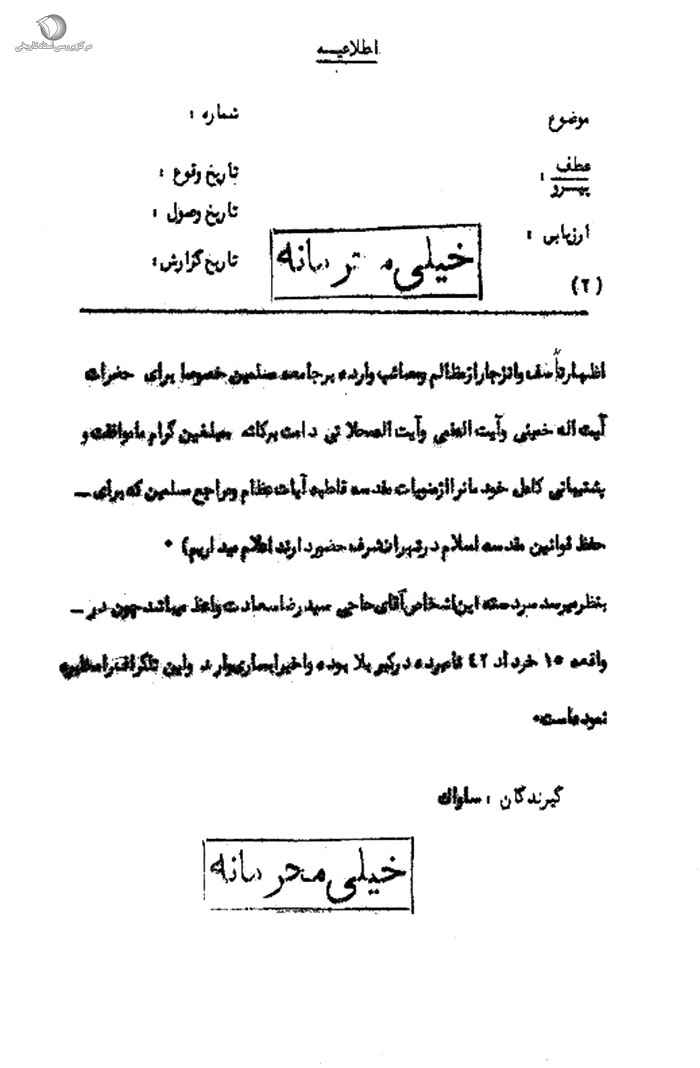 مرکز بررسی اسناد تاریخی
اطلاعیـــه
موضوع
شماره :
عطف
پیـــرو :
تاریخ وقوع :
تاریخ وصول :
ارزیابی :
تاریخ گزارش :
خیلی م رمانه
(۲)
اظهار تأسف و انزجار از مظالم و مصائب وارده بر جامعه مسلمین خصوصا برای حضرات
آیت اله خمینی و آیت القمی و آیت المحلاتی دامت برکاته مبلغین گرام ما موافقت و
پشتیبانی کامل خودمانرا از منویات مقدسه قاطبه آیات عظام و مراجع مسلمین که برای ـ
حفظ قوانین مقدسه اسلام در تهران تشرف حضور دارند اعلام میداریم) ۰
بنظر میرسد سر دسته این اشخاص آقای حاجی سید رضا سعادت واعظ میباشد چون در ـ
واقعه ۱۵ خرداد ۴۲ نامبرده در کربلا بوده و اخیرا وارد و این تلگراف را
نموده است۰
گیرندگان : ساواک
خیلی محرمانه